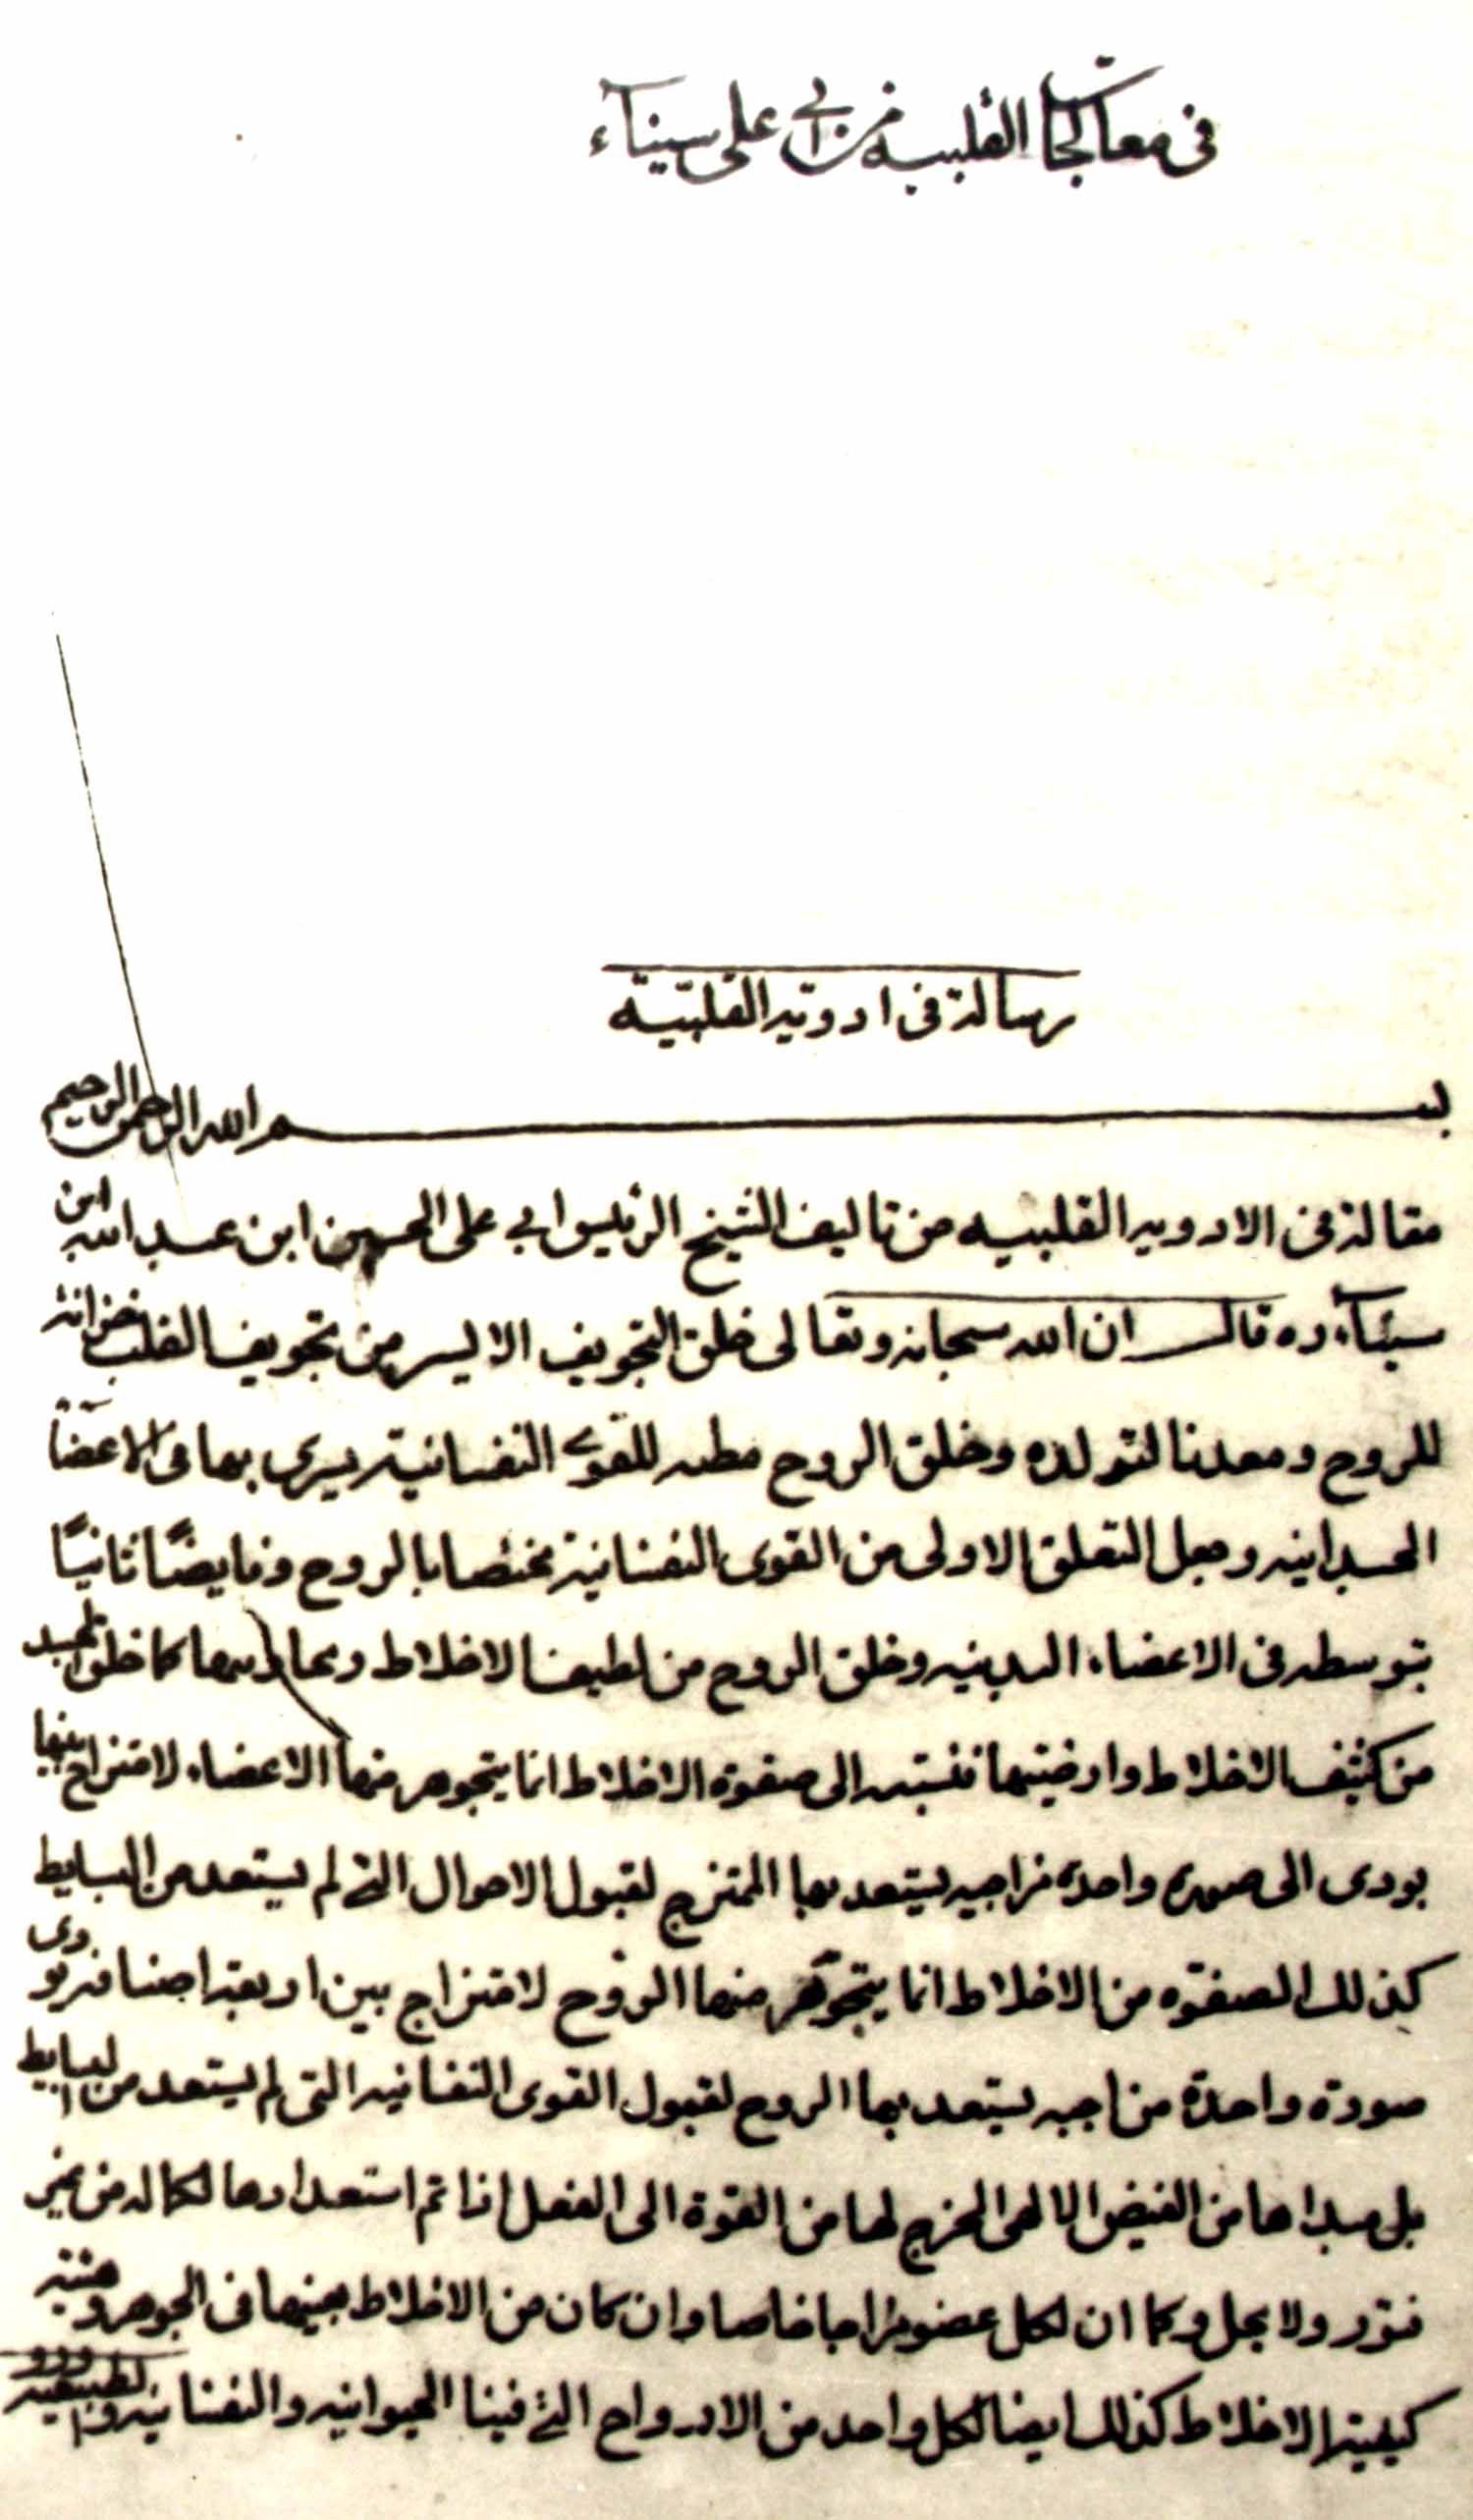 فی معالجات القلبیه من ابی علی سیناء
رسالة فی ادویة القلبیّة
بسم الله الرحمن الرحیم
مقالة فی الادویه القلبیه من تالیف الشیخ الرئیس ابی علی الحسین ابن عبد الله ابن
سیناء ره قال ان الله سبحانه وتعالی خلق التجویف الایسر من تجویف القلب خزانة
للروح ومعدنا لتولده وخلق الروح مطیه للقوی النفسانیة یسری بها فی الاعضاء
الجسدانیه وجعل التعلق الاولی من القوی النفسانیة مختصا بالروح وفایضًا ثانیًا
بتوسطه فی الاعضاء البدنیه وخلق الروح من لطیف الاخلاط وبخاریتها کما خلق الجسد
من کثیف الاخلاط وارضیتها فنسبته الی صفوة الاخلاط انما یتجوهر منها الاعضاء لامتزاج بینها
یودی الی صوره واحدة مزاجیه یستعد بها الممتزج لقبول الاحوال التی لم یستعد من البسایط
کذلک الصفوه من الاخلاط انما یتجوهر منها الروح لامتزاج بین اربعة اصنافه یودی
صورة واحدة مزاجیه یستعد بها الروح لقبول القوی النفسانیه التی لم یستعد من البسایط
بل مبداها من الفیض الالهی المخرج لها من القوة الی الفعل اذا تم استعدادها لکماله من غیر
فتور ولا بخل وکما ان لکل عضو مزاجا خاصا وان کان من الاخلاط بعینها فی الجوهر و
کیفیة الاخلاط کذلک ایضا لکل واحد من الارواح التی فینا الحیوانیه والنفسانیه والطبیعیه